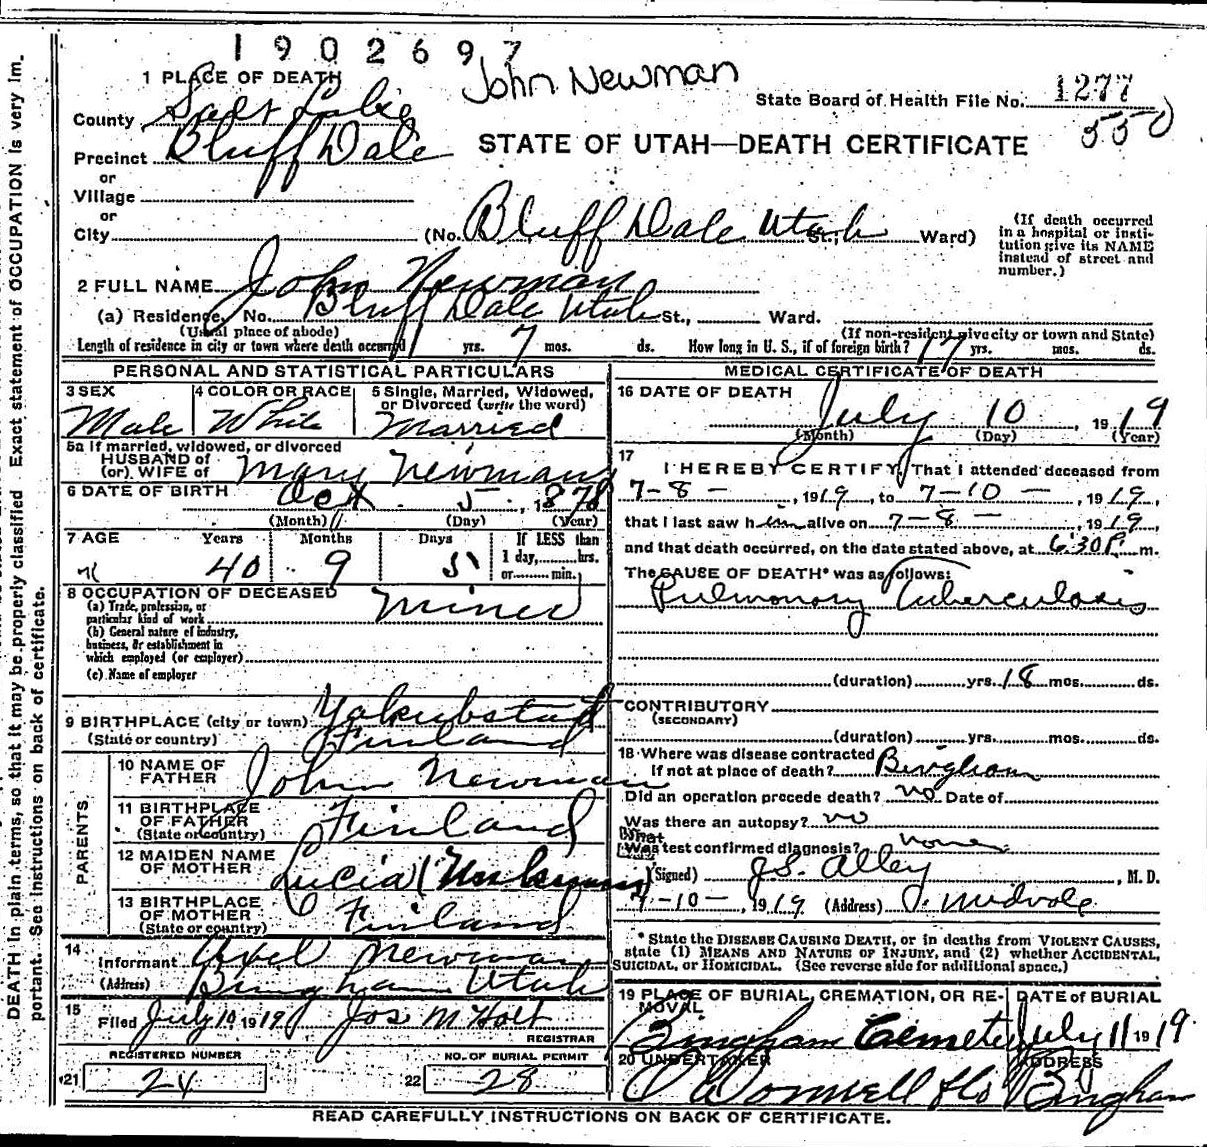 1902697
John Newman
1 PLACE OF DEATH
State Board of Health File No. 1277
550
County Salt Lake
STATE OF UTAH—DEATH CERTIFICATE
Precinct Bluff Dale
or
Village
or
City (No. Bluff Dale Utah St., Ward)
(If death occurred in a hospital or insti-
tution give its NAME
instead of street and
number.)
2 FULL NAME John Newman
(a) Residence, No. Bluff Dale Utah St., Ward.
(Usual place of abode) (If non-resident give city or town and State)
Length of residence in city or town where death occurred 1 yrs. 7 mos. ds. How long in U. S., if of foreign birth? 17 yrs. mos. ds.
PERSONAL AND STATISTICAL PARTICULARS
3 SEX Male
4 COLOR OR RACE White
5 Single, Married, Widowed,
or Divorced (write the word)
Married
5a If married, widowed, or divorced
HUSBAND of
(or) WIFE of Mary Newman
6 DATE OF BIRTH Oct 5, 1878
(Month) (Day) (Year)
7 AGE Years Months Days If LESS than
1 day, hrs.
or min.
40 9 5
8 OCCUPATION OF DECEASED
(a) Trade, profession, or
particular kind of work Miner
(b) General nature of industry,
business, or establishment in
which employed (or employer)
(c) Name of employer
9 BIRTHPLACE (city or town) Yakubstad
(State or country) Finland
PARENTS
10 NAME OF
FATHER John Newman
11 BIRTHPLACE
OF FATHER
(State or country) Finland
12 MAIDEN NAME
OF MOTHER Lucia
13 BIRTHPLACE
OF MOTHER
(State or country) Finland
14 Informant Newman
(Address) Bingham Utah
15 Filed July 10 1919 Jos M Holt
REGISTRAR
REGISTERED NUMBER NO. OF BURIAL PERMIT
21 24 22 28
MEDICAL CERTIFICATE OF DEATH
16 DATE OF DEATH
July 10, 1919
(Month) (Day) (Year)
17 I HEREBY CERTIFY, That I attended deceased from
7-8-, 1919, to 7-10-, 1919,
that I last saw him alive on 7-8-, 1919,
and that death occurred, on the date stated above, at 6:30 P. m.
The CAUSE OF DEATH* was as follows:
Pulmonary Tuberculosis
(duration) yrs. 18 mos. ds.
CONTRIBUTORY
(SECONDARY)
(duration) yrs. mos. ds.
18 Where was disease contracted
If not at place of death? Bingham
Did an operation precede death? no Date of
Was there an autopsy? no
What test confirmed diagnosis? none
(Signed) J.S. Alley, M. D.
7-10-, 1919 (Address) Midvale
* State the DISEASE CAUSING DEATH, or in deaths from VIOLENT CAUSES,
state (1) MEANS AND NATURE OF INJURY, and (2) whether ACCIDENTAL,
SUICIDAL, or HOMICIDAL. (See reverse side for additional space.)
19 PLACE OF BURIAL, CREMATION, OR RE-
MOVAL
Bingham Cemetery
DATE of BURIAL
July 11 1919
20 UNDERTAKER
O'Donnell & Co
ADDRESS
Bingham
READ CAREFULLY INSTRUCTIONS ON BACK OF CERTIFICATE.
DEATH in plain terms, so that it may be properly classified. Exact statement of OCCUPATION is very im-
portant. See instructions on back of certificate.